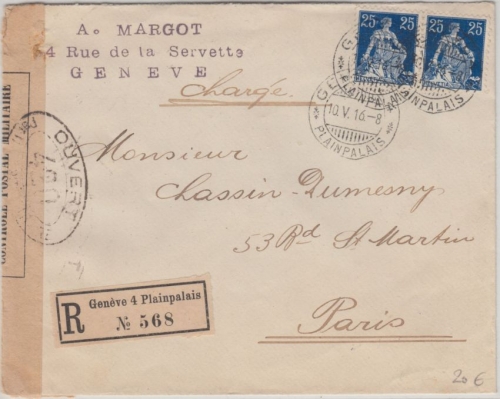 A. MARGOT
4 Rue de la Servette
GENEVE
Chargé.
25 25
25 25
PLAINPALAIS
10.V.16-8
PLAINPALAIS
CONTRÔLE POSTAL MILITAIRE
OUVERT
Monsieur
Chassin-Dumesny
53 Bd St Martin
Paris
R
Genève 4 Plainpalais
№ 568
20 €